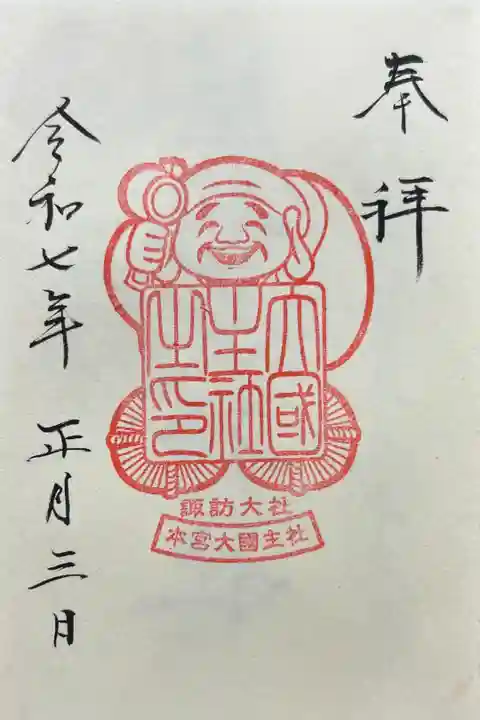 奉拝
大國
主社
之印
諏訪大社
本宮大國主社
令和七年 正月三日